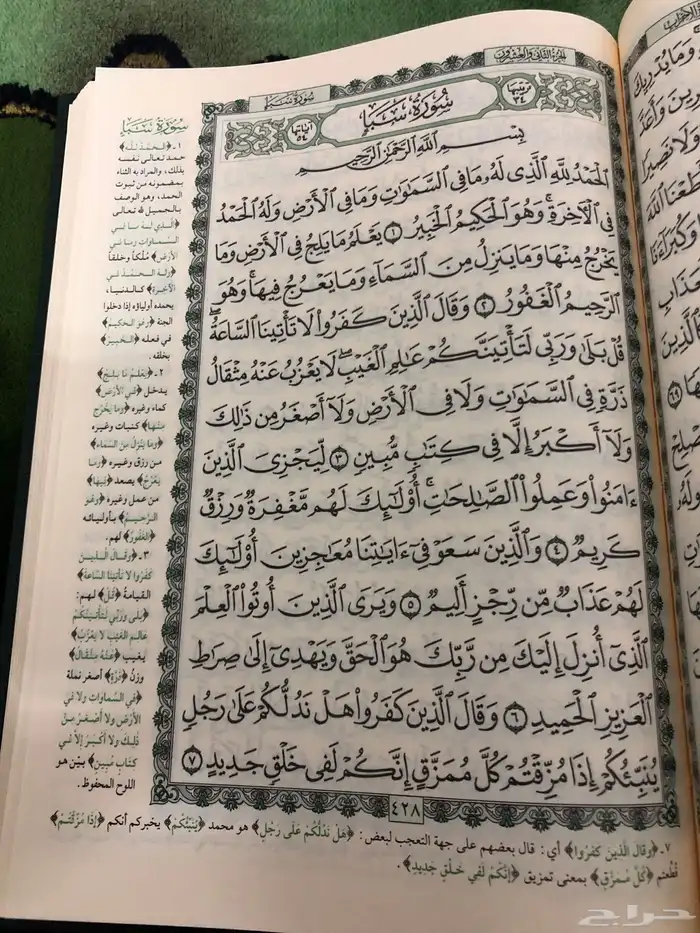 الجزء الثاني والعشرون
سورة سبأ
ترتيبها ٣٤
سُورَةُ سَبَإٍ
آياتها ٥٤
بِسْمِ اللَّهِ الرَّحْمَٰنِ الرَّحِيمِ
الْحَمْدُ لِلَّهِ الَّذِي لَهُ مَا فِي السَّمَاوَاتِ وَمَا فِي الْأَرْضِ وَلَهُ الْحَمْدُ
فِي الْآخِرَةِ ۚ وَهُوَ الْحَكِيمُ الْخَبِيرُ ١ يَعْلَمُ مَا يَلِجُ فِي الْأَرْضِ وَمَا
يَخْرُجُ مِنْهَا وَمَا يَنزِلُ مِنَ السَّمَاءِ وَمَا يَعْرُجُ فِيهَا ۚ وَهُوَ
الرَّحِيمُ الْغَفُورُ ٢ وَقَالَ الَّذِينَ كَفَرُوا لَا تَأْتِينَا السَّاعَةُ ۖ
قُلْ بَلَىٰ وَرَبِّي لَتَأْتِيَنَّكُمْ عَالِمِ الْغَيْبِ ۖ لَا يَعْزُبُ عَنْهُ مِثْقَالُ
ذَرَّةٍ فِي السَّمَاوَاتِ وَلَا فِي الْأَرْضِ وَلَا أَصْغَرُ مِن ذَٰلِكَ
وَلَا أَكْبَرُ إِلَّا فِي كِتَابٍ مُّبِينٍ ٣ لِّيَجْزِيَ الَّذِينَ
ءَامَنُوا وَعَمِلُوا الصَّالِحَاتِ ۚ أُولَٰئِكَ لَهُم مَّغْفِرَةٌ وَرِزْقٌ
كَرِيمٌ ٤ وَالَّذِينَ سَعَوْ فِي ءَايَاتِنَا مُعَاجِزِينَ أُولَٰئِكَ
لَهُمْ عَذَابٌ مِّن رِّجْزٍ أَلِيمٌ ٥ وَيَرَى الَّذِينَ أُوتُوا الْعِلْمَ
الَّذِي أُنزِلَ إِلَيْكَ مِن رَّبِّكَ هُوَ الْحَقَّ وَيَهْدِي إِلَىٰ صِرَاطِ
الْعَزِيزِ الْحَمِيدِ ٦ وَقَالَ الَّذِينَ كَفَرُوا هَلْ نَدُلُّكُمْ عَلَىٰ رَجُلٍ
يُنَبِّئُكُمْ إِذَا مُزِّقْتُمْ كُلَّ مُمَزَّقٍ إِنَّكُمْ لَفِي خَلْقٍ جَدِيدٍ ٧
٤٢٨
سورة سبأ
١ـ ﴿الحمد لله﴾
حمد تعالى نفسه
بذلك، والمراد به الثناء
بمضمونه من ثبوت
الحمد، وهو الوصف
بالجميل لله تعالى
﴿الذي له ما في
السماوات وما في
الأرض﴾ مُلكاً وخلقاً
﴿وله الحمد في
الآخرة﴾ كالدنيا،
يحمده أولياؤه إذا دخلوا
الجنة ﴿وهو الحكيم﴾
في فعله ﴿الخبير﴾
بخلقه.
٢ـ ﴿يعلم ما يلج﴾
يدخل ﴿في الأرض﴾
كماء وغيره ﴿وما يخرج
منها﴾ كنبات وغيره
﴿وما ينزل من السماء﴾
من رزق وغيره ﴿وما
يعرج﴾ يصعد ﴿فيها﴾
من عمل وغيره ﴿وهو
الرحيم﴾ بأوليائه
﴿الغفور﴾ لهم.
٣ـ ﴿وقال الذين
كفروا لا تأتينا الساعة﴾
القيامة ﴿قل﴾ لهم:
﴿بلى وربي لتأتينكم
عالم الغيب لا يعزب﴾
يغيب ﴿عنه مثقال﴾
وزن ﴿ذرة﴾ أصغر نملة
﴿في السماوات ولا في
الأرض ولا أصغر من
ذلك ولا أكبر إلا في
كتاب مبين﴾ بيّن هو
اللوح المحفوظ.
٧ـ ﴿وقال الذين كفروا﴾ أي: قال بعضهم على جهة التعجب لبعض: ﴿هَلْ نَدُلُّكُمْ عَلَى رَجُلٍ﴾ هو محمد ﴿يُنَبِّئُكُمْ﴾ يخبركم أنكم ﴿إِذَا مُزِّقْتُمْ﴾
قُطِّعتم ﴿كُلَّ مُمَزَّقٍ﴾ بمعنى تمزيق ﴿إِنَّكُمْ لَفِي خَلْقٍ جَدِيدٍ﴾.
حراج